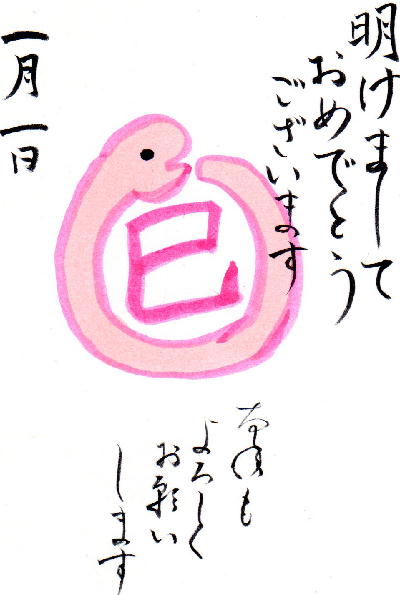 明けまして
おめでとう
ございます
巳
本年も
よろしく
お願い
します
一月一日